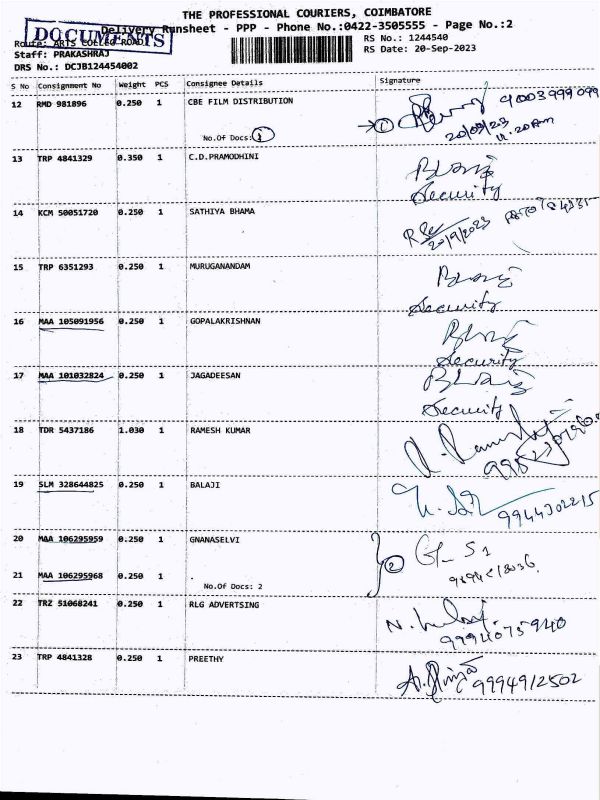 THE PROFESSIONAL COURIERS, COIMBATORE
Delivery Runsheet - PPP - Phone No.:0422-3505555 - Page No.:2
DOCUMENTS
Route: ARTS COLLEG ROAD
RS No.: 1244540
Staff: PRAKASHRAJ
RS Date: 20-Sep-2023
DRS No.: DCJB124454002
S No Consignment No Weight PCS Consignee Details Signature
12 RMD 981896 0.250 1 CBE FILM DISTRIBUTION 9003999099
No.Of Docs: 1
20/09/23
11.20Am
13 TRP 4841329 0.350 1 C.D.PRAMODHINI
Security
14 KCM 50051720 0.250 1 SATHIYA BHAMA
20/9/2023
15 TRP 6351293 0.250 1 MURUGANANDAM
Security
16 MAA 105091956 0.250 1 GOPALAKRISHNAN
Security
17 MAA 101032824 0.250 1 JAGADEESAN
Security
18 TDR 5437186 1.030 1 RAMESH KUMAR
19 SLM 328644825 0.250 1 BALAJI
9944302215
20 MAA 106295959 0.250 1 GNANASELVI
2
21 MAA 106295968 0.250 1 .
No.Of Docs: 2
22 TRZ 51068241 0.250 1 RLG ADVERTSING
9994075940
23 TRP 4841328 0.250 1 PREETHY
9994912502